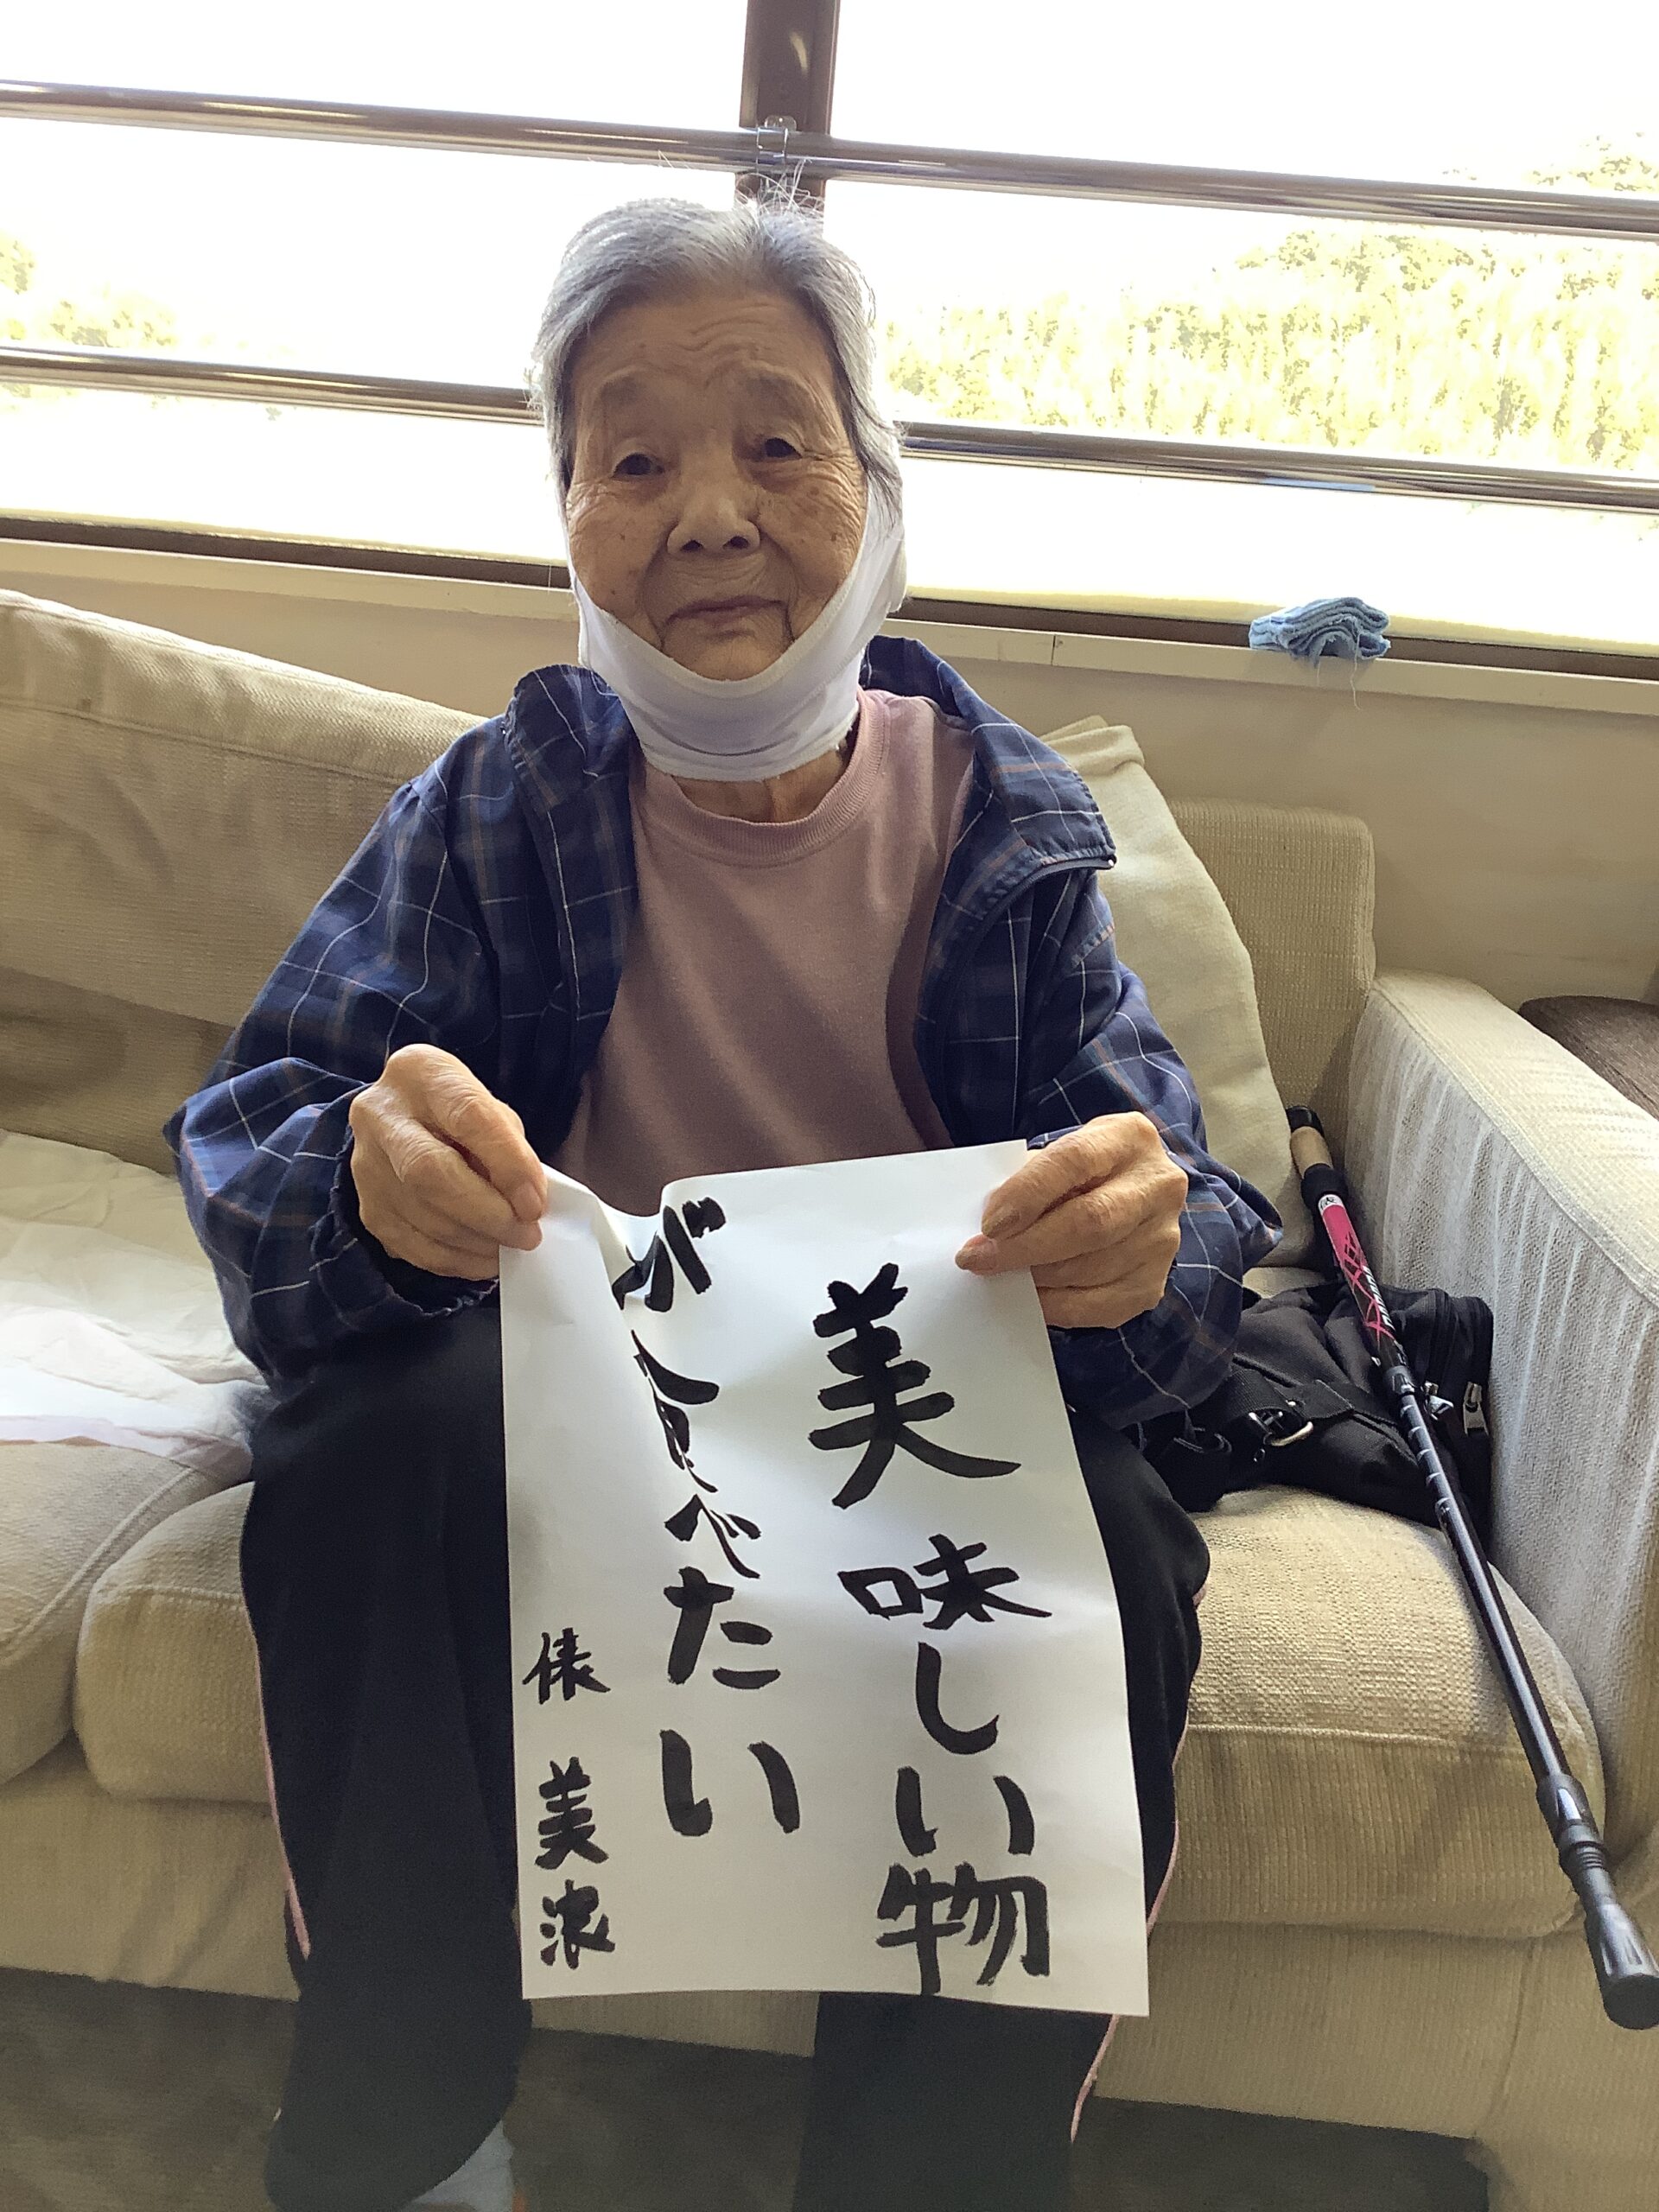 美味しい物
が食べたい
俵 美浪